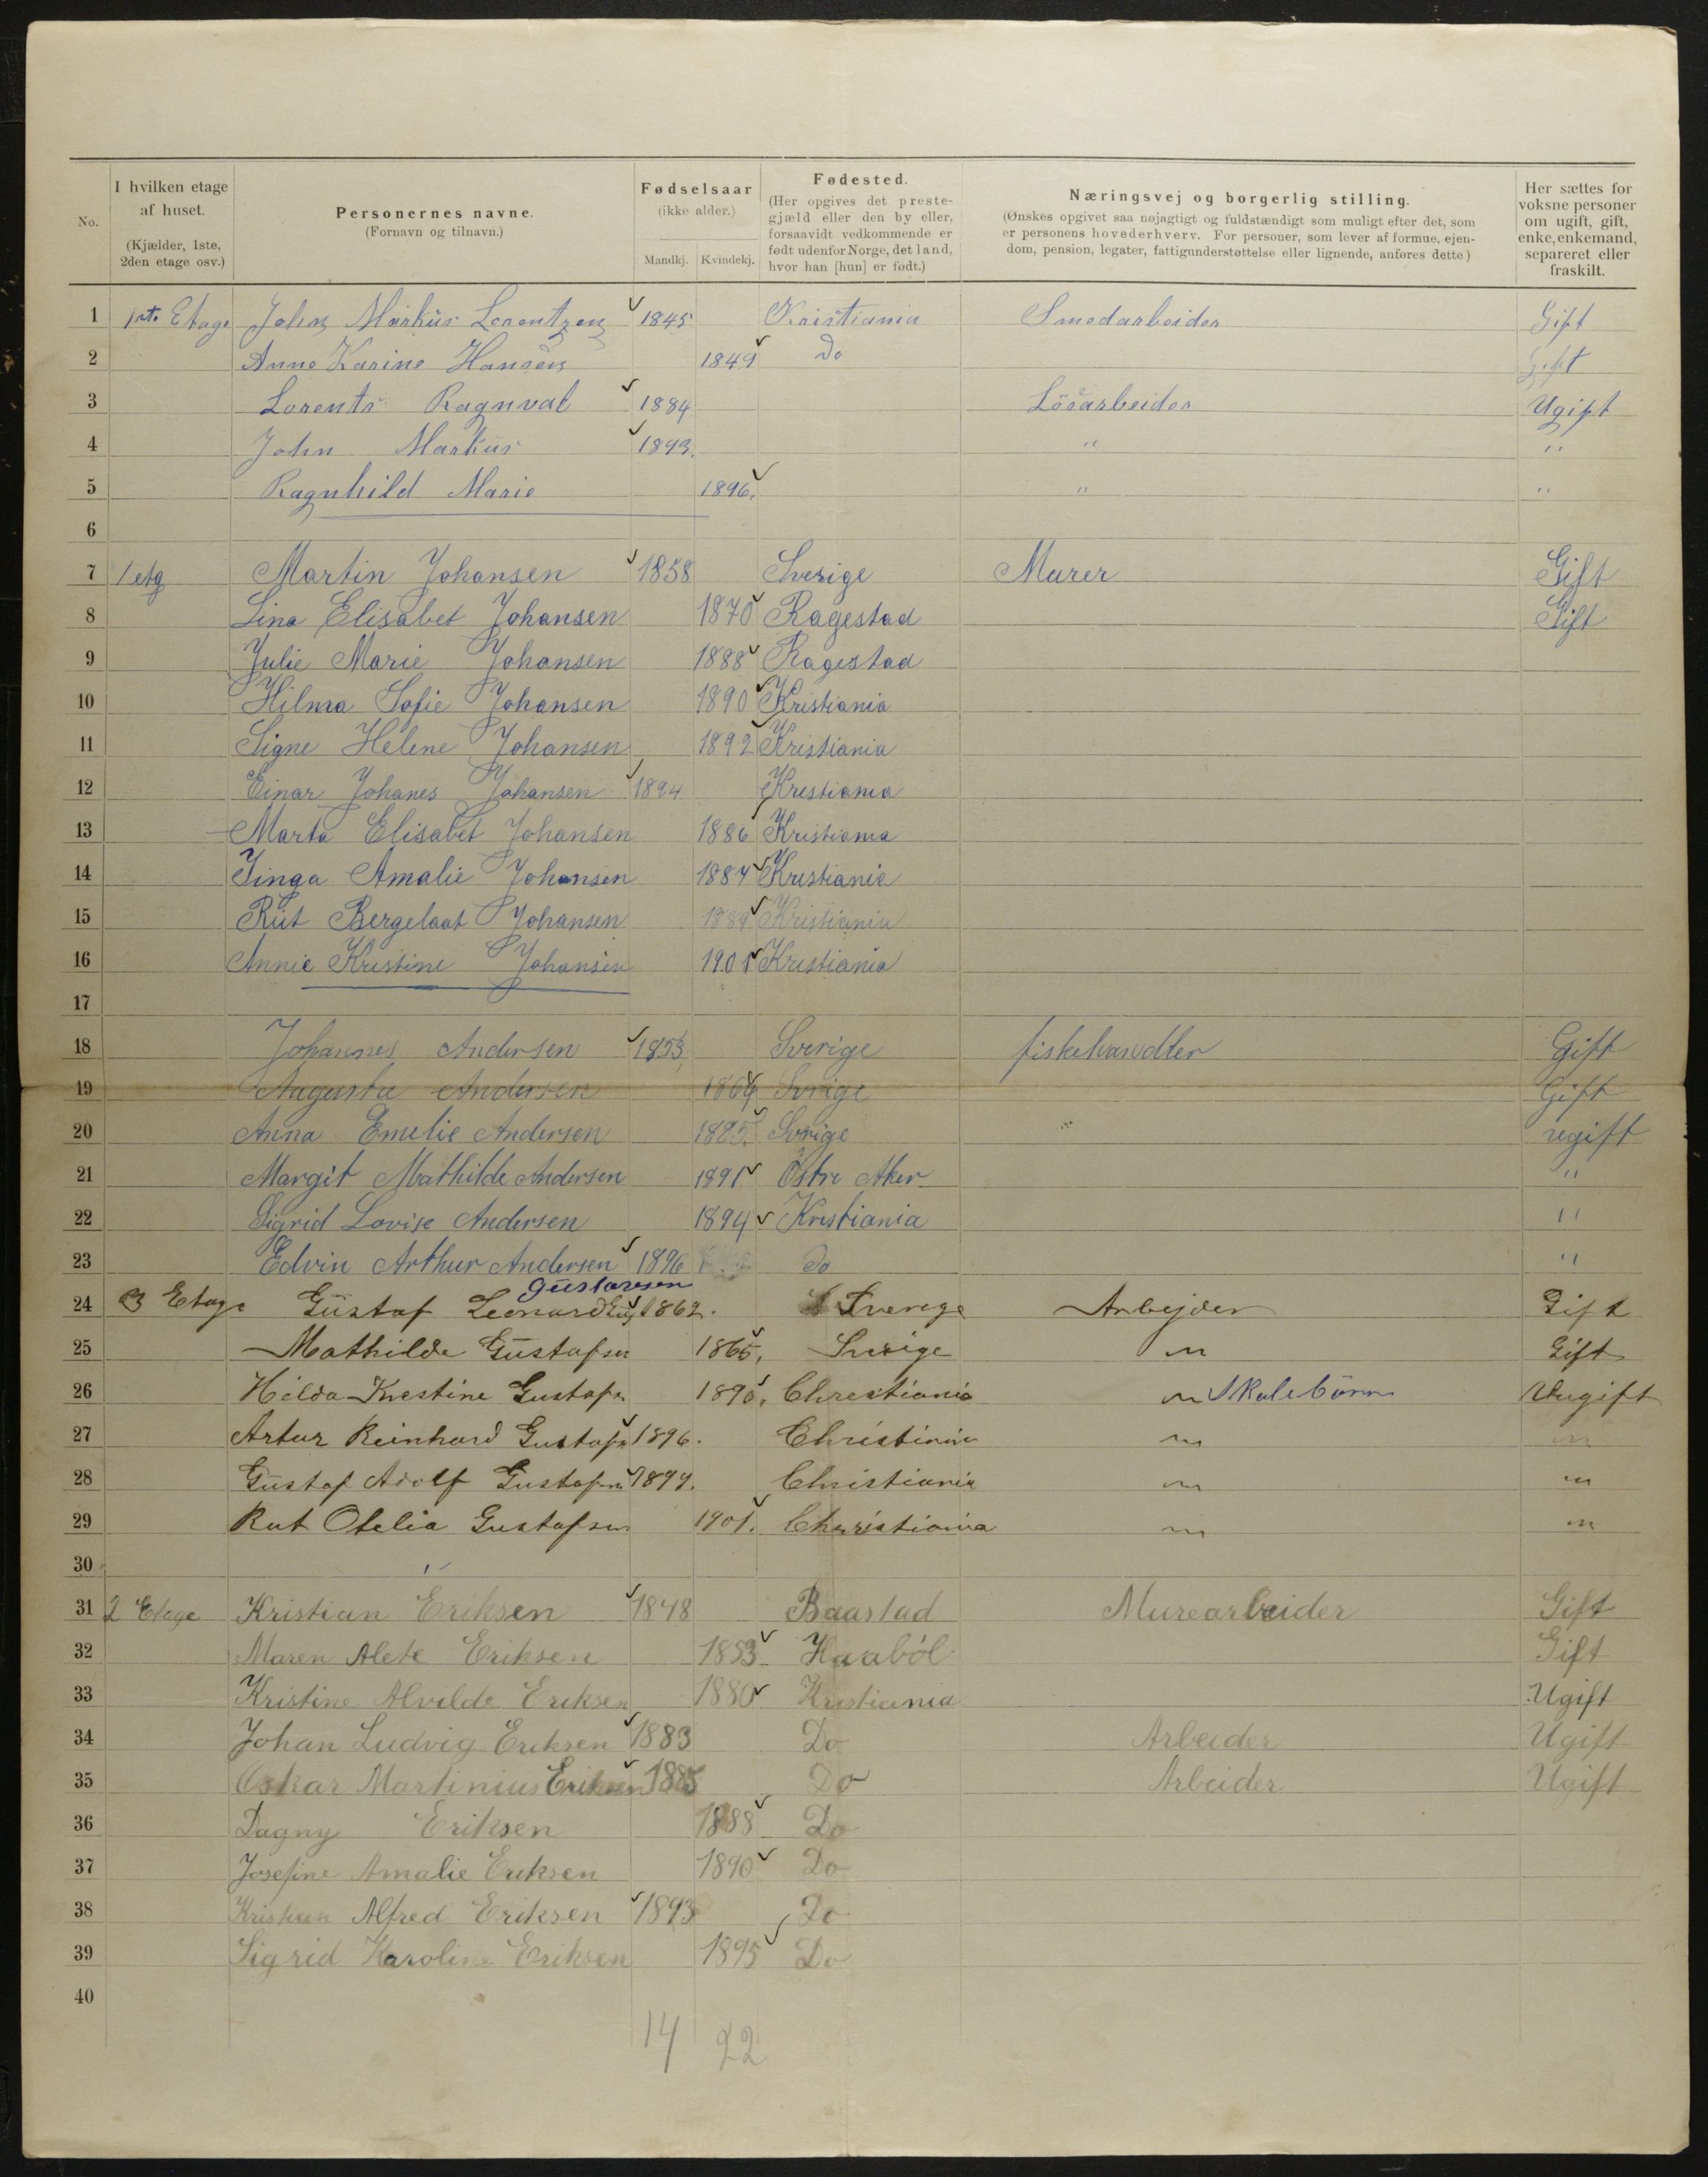 No.
I hvilken etage af huset.
(Kjælder, 1ste, 2den etage osv.)
Personernes navne.
(Fornavn og tilnavn.)
Fødselsaar
(ikke alder.)
Mandkj. Kvindekj.
Fødested.
(Her opgives det prestegjæld eller den by eller, forsaavidt vedkommende er født udenfor Norge, det land, hvor han [hun] er født.)
Næringsvej og borgerlig stilling.
(Ønskes opgivet saa nøjagtigt og fuldstændigt som muligt efter det, som er personens hovederhverv. For personer, som lever af formue, ejendom, pension, legater, fattigunderstøttelse eller lignende, anføres dette.)
Her sættes for voksne personer om ugift, gift, enke, enkemand, separeret eller fraskilt.
1 1st. Etage John Markus Lorentzen 1845 Kristiania Smedarbeider Gift
2 Anne Karine Hansen 1849 Do Gift
3 Lorents Ragnval 1884 Lösarbeider Ugift
4 John Markus 1893. " "
5 Ragnhild Marie 1896. " "
6
7 1 etg Martin Johansen 1858 Sverige Murer Gift
8 Lina Elisabet Johansen 1870 Ragestad Gift
9 Julie Marie Johansen 1888 Ragestad
10 Hilma Sofie Johansen 1890 Kristiania
11 Signe Helene Johansen 1892 Kristiania
12 Einar Johanes Johansen 1894 Kristiania
13 Marta Elisabet Johansen 1886 Kristiania
14 Inga Amalie Johansen Kristiania
15 Rut Johansen Kristiania
16 Annie Kristine Johansen 1901 Kristiania
17
18 Johannes Andersen 1853 Sverige fiskehandler Gift
19 Augusta Andersen Sverige Gift
20 Anna Emelie Andersen 1885. Sverige " ugift
21 Margit Mathilde Andersen 1891 Östre Aker "
22 Sigrid Lovise Andersen 1894 Kristiania "
23 Edvin Arthur Andersen 1896 do "
Gustavsen
24 3 Etage Gustaf Leonard 1862. Sverege Arbejder Gift
25 Mathilde Gustafsen 1865. Sverige " Gift
26 Hilda Krestine Gustafsn 1890. Chrestiania " Skolebörn Uugift
27 Artur Reinhard Gustafsn 1896. Christiania " "
28 Gustaf Adolf Gustafsn 1899. Christiania " "
29 Rut Otelia Gustafsen 1901. Chrristiania " "
30 "
31 2 Etage Kristian Eriksen 1848 Baastad Murearbeider Gift
32 Maren Alete Eriksen 1853 Haaböl Gift
33 Kristine Alvilde Eriksen 1880 Kristiania Ugift
34 Johan Ludvig Eriksen 1883 Do Arbeider Ugift
35 Oskar Martinius Eriksen 1885 Do Arbeider Ugift
36 Dagny Eriksen 1888 Do
37 Josefine Amalie Eriksen 1890 Do
38 Kristian Alfred Eriksen 1893 Do
39 Sigrid Karoline Eriksen 1895 Do
40
14 22